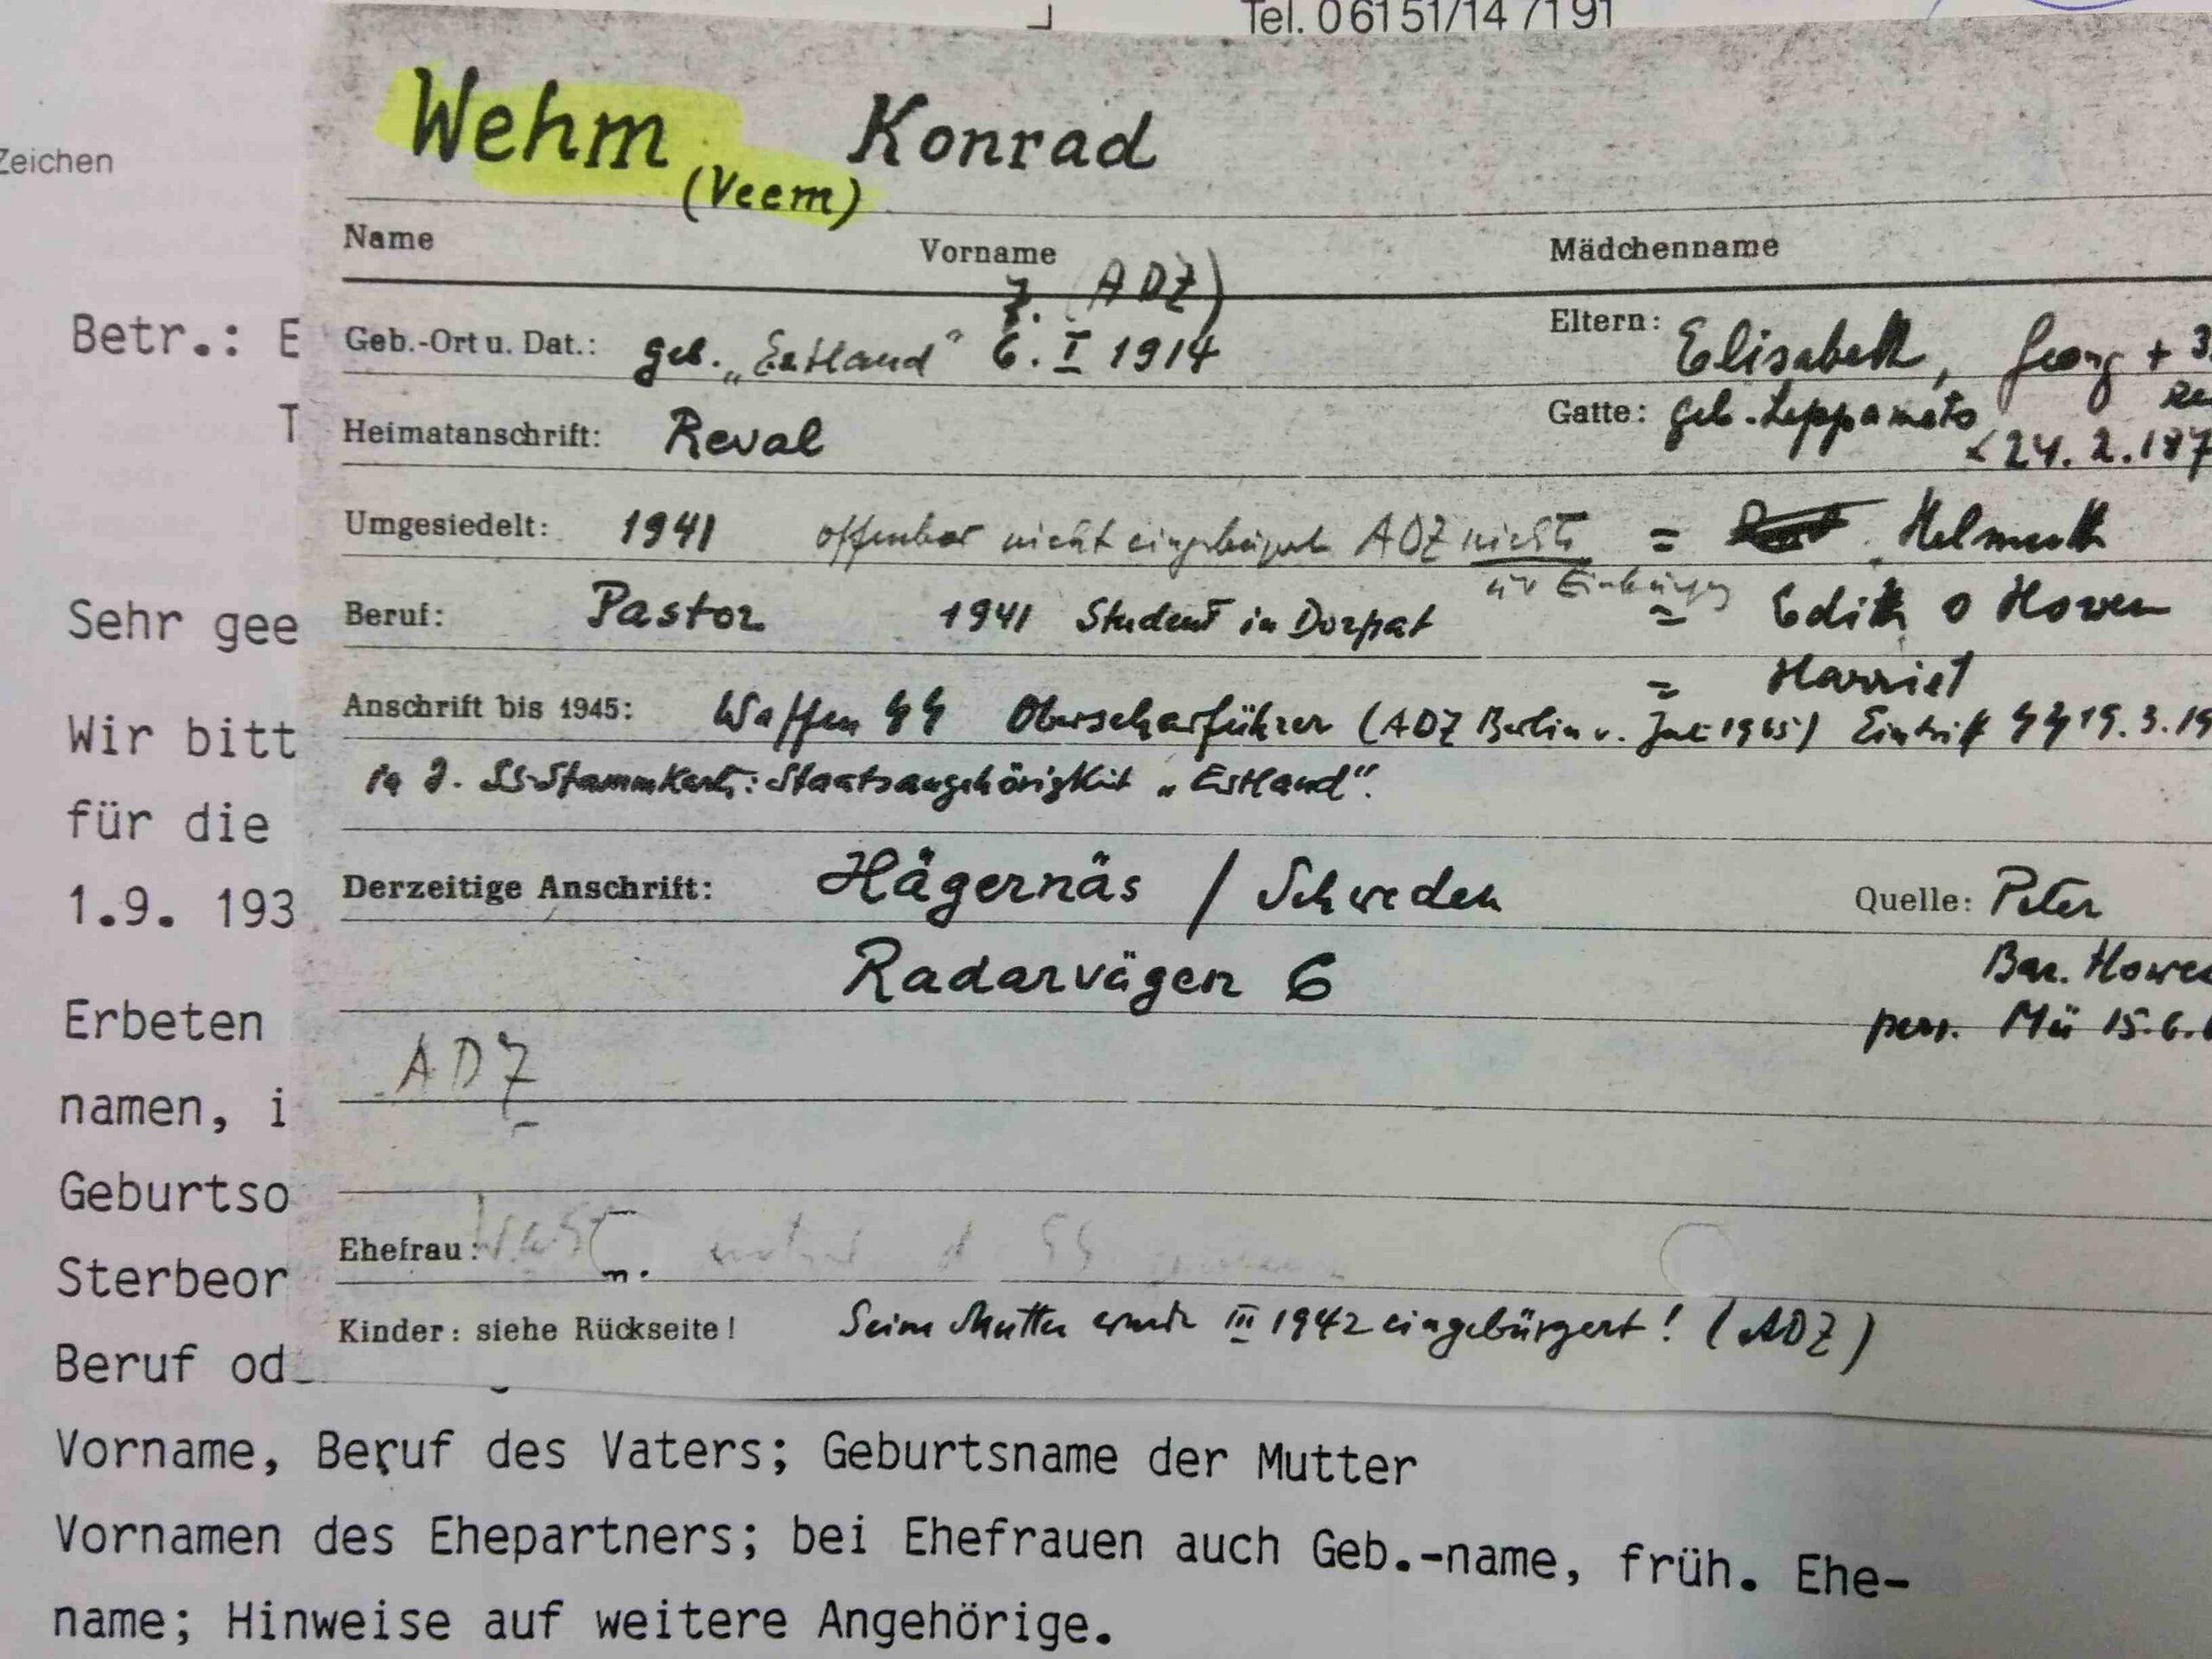 Tel. 06151/14 7191
Zeichen
Wehm Konrad
(Veem)
Name Vorname Mädchenname
7. (ADZ)
Betr.: E
Geb.-Ort u. Dat.: geb. „Estland“ 6. I 1914 Eltern: Elisabeth, Georg + 3
T
Heimatanschrift: Reval Gatte: geb. Leppamets
24.2.187
Umgesiedelt: 1941 offenbar nicht eingebürgert ADZ nichts = Helmuth
Sehr gee
Beruf: Pastor 1941 Student in Dorpat = Edith o Howen
= Harriet
Wir bitt
Anschrift bis 1945: Waffen SS Oberscharführer (ADZ Berlin v. 1945) Eintritt SS 19.3.19
in d. SS-Stammkarte: Staatsangehörigkeit „Estland“.
für die
1.9. 193
Derzeitige Anschrift: Hägernäs / Schweden Quelle: Peter
Radarvägen 6 Bar. Howe
pers. Mü 15.6.
Erbeten
ADZ
namen, i
Geburtso
Ehefrau:
Sterbeor
Kinder: siehe Rückseite! Seine Mutter wurde III 1942 eingebürgert! (ADZ)
Beruf od
Vorname, Beruf des Vaters; Geburtsname der Mutter
Vornamen des Ehepartners; bei Ehefrauen auch Geb.-name, früh. Ehe-
name; Hinweise auf weitere Angehörige.